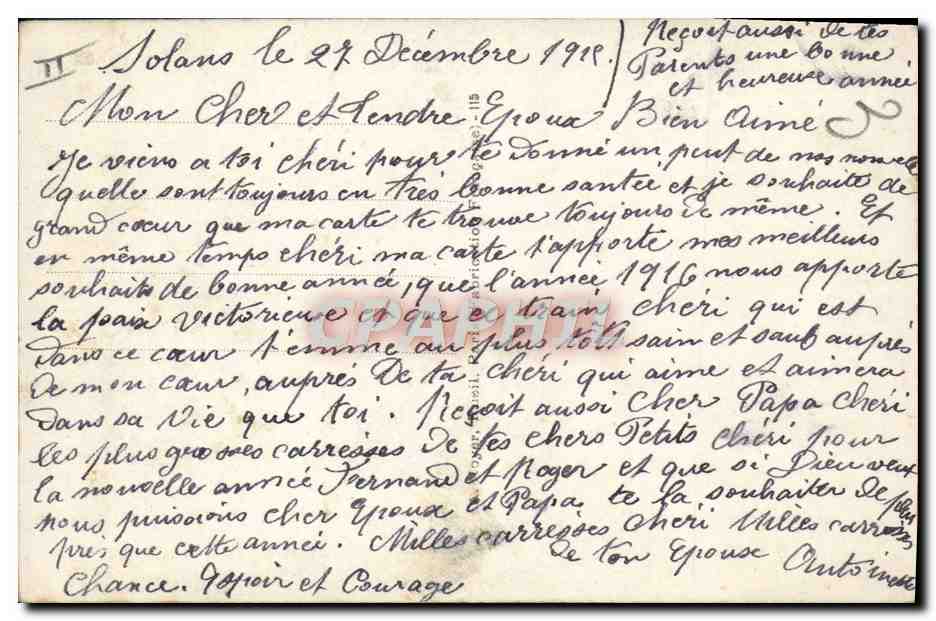 II
Solans le 27 Décembre 1915.
Reçoit aussi de tes
Parents une bonne
et heureuse année
3
Mon Cher et Tendre Epoux Bien Aimé
Je viens a toi chéri pour te donné un peut de nos nouvelle
quelle sont toujours en très bonne santée et je souhaite de
grand cœur que ma carte te trouve toujours de même. Et
en même temps chéri ma carte t'apporte mes meilleurs
souhaits de bonne année, que l'année 1916 nous apporte
la paix victorieuse et que ce train chéri qui est
dans ce cœur t'emme au plus tôtt sain et saub auprès
de mon cœur, auprès De ta chéri qui aime et aimera
dans sa vie que toi. Reçoit aussi Cher Papa Chéri
les plus grosses carresses de tes chers Petits chéri pour
la nouvelle année Fernand et Roger et que si Dieu veux
nous puissions cher Epoux et Papa te la souhaiter de plus
près que cette année. Milles carresses chéri Milles carresses
de ton Epouse Antoinette
Chance. Espoir et Courage
115
CPAPHIL